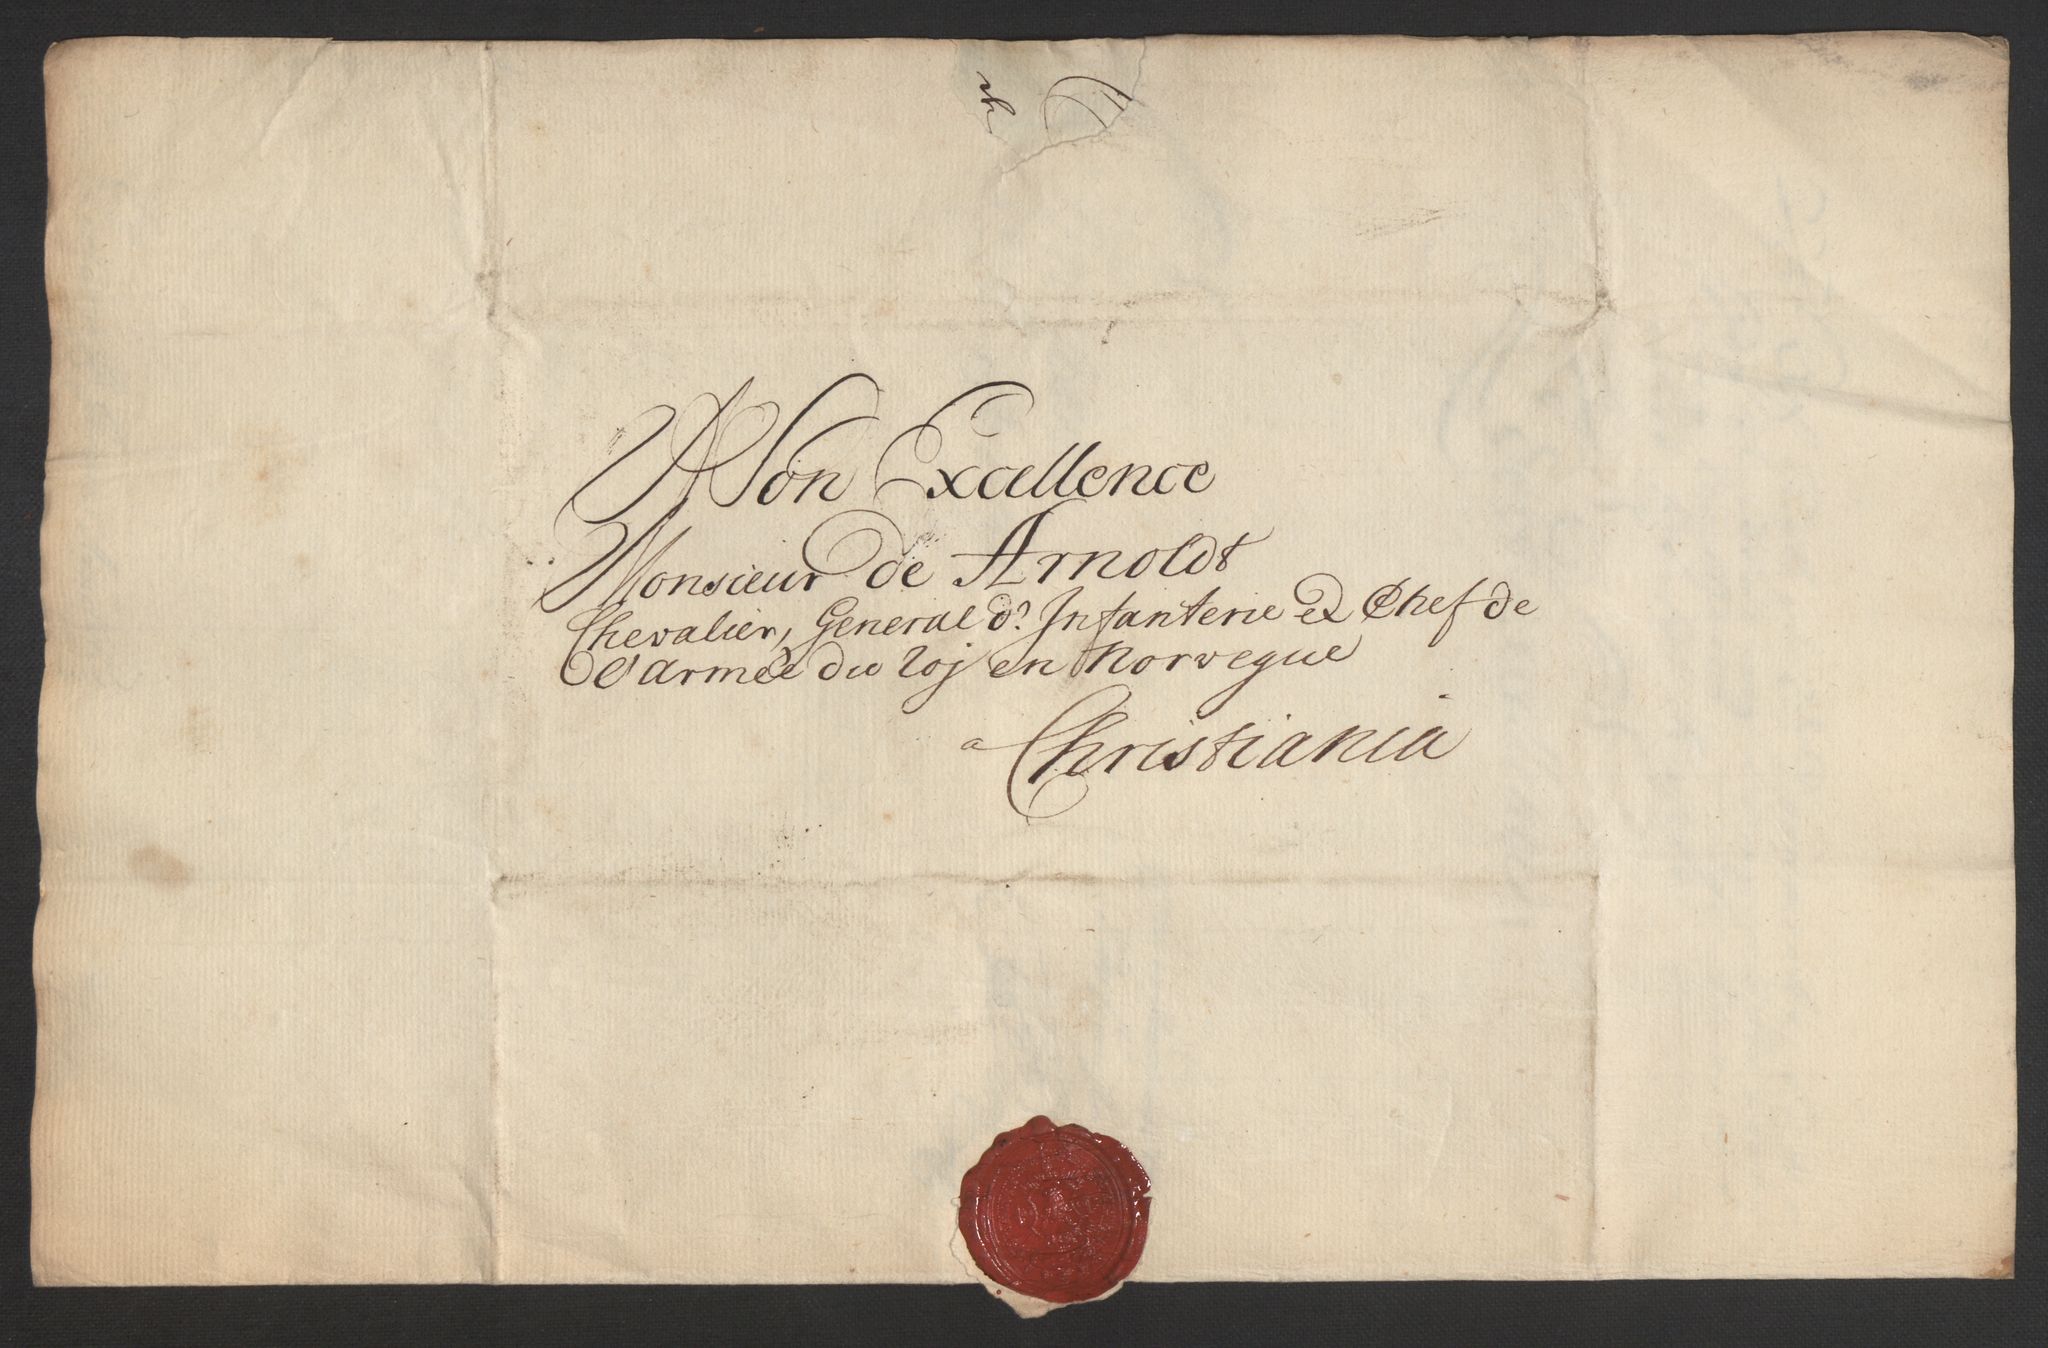 A Son Excellence
Monsieur de Arnoldt
Chevalier, General d'Infanterie et Chef de
l'Armée du roj en Norvegue
a Christiania